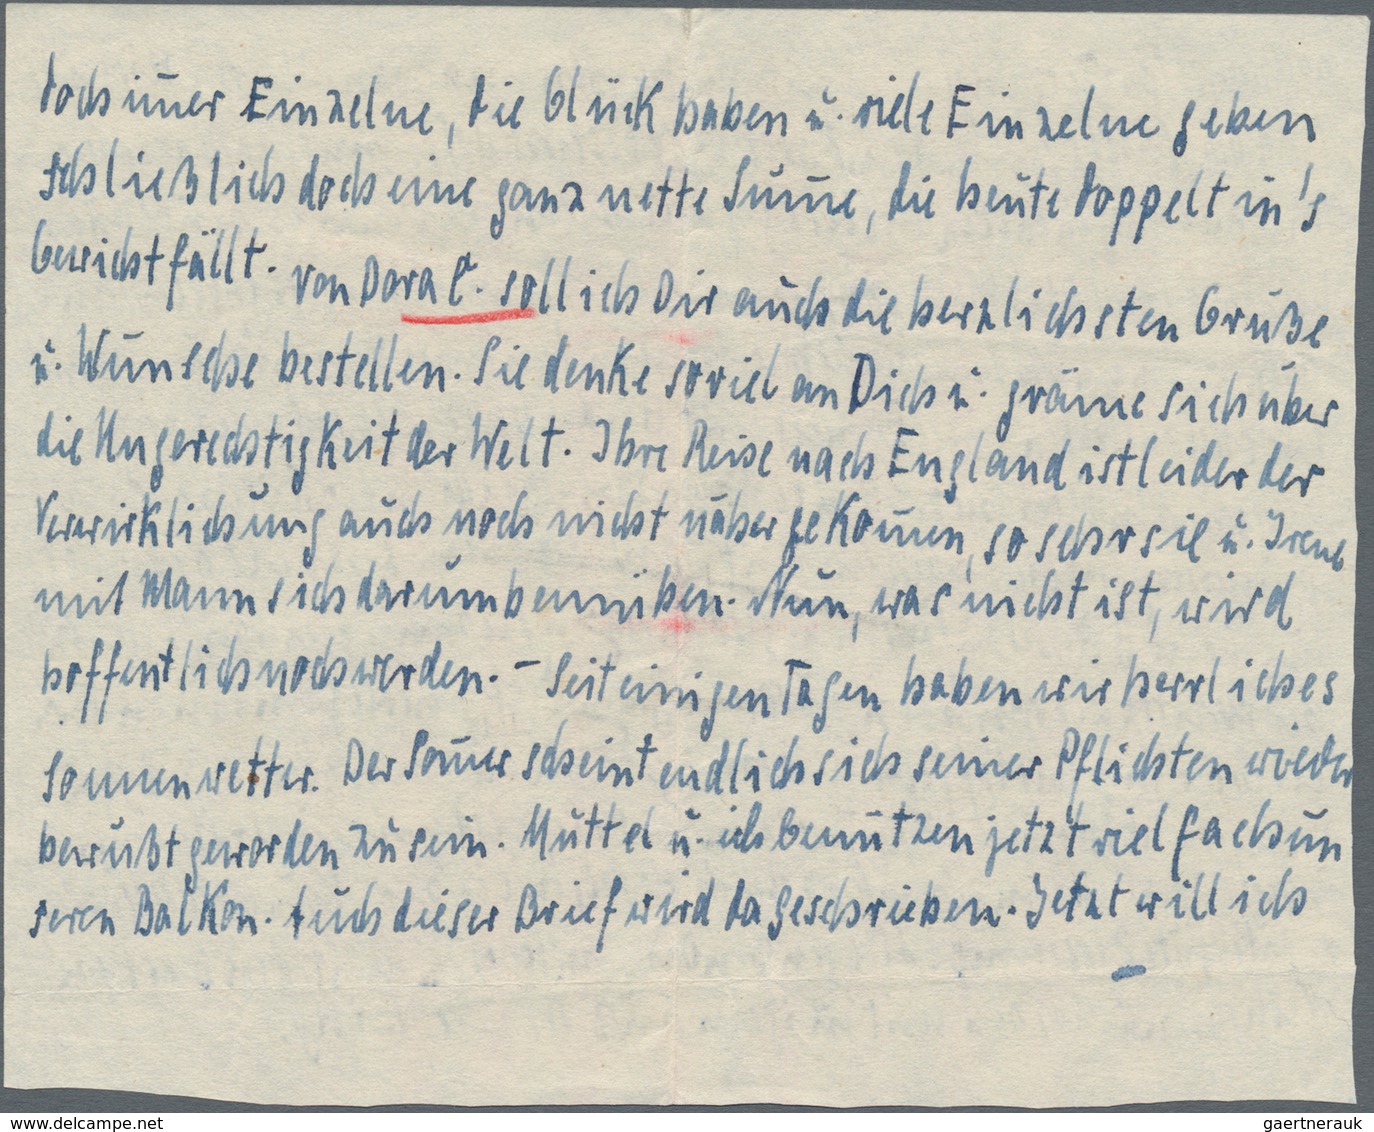 doch im̄er Einzelne, die Glück haben u. viele Einzelne geben
schließlich doch eine ganz nette Sum̄e, die heute doppelt in's
Gewicht fällt. Von Dora C. soll ich Dir auch die herzlichsten Grüße
u. Wünsche bestellen. Sie denke soviel an Dich u. gräme sich über
die Ungerechtigkeit der Welt. Ihre Reise nach England ist leider der
Verwirklichung auch noch nicht näher gekom̄en, so sehr sie u. Irene
mit Mann sich darum bemühen. Nun, was nicht ist, wird
hoffentlich noch werden. – Seit einigen Tagen haben wir herrliches
Sonnenwetter. Der Som̄er scheint endlich sich seiner Pflichten wieder
bewußt geworden zu sein. Muttel u. ich benutzen jetzt vielfach un
seren Balkon. Auch dieser Brief wird da geschrieben. Jetzt will ich
gaertnerauk @ www.delcampe.net